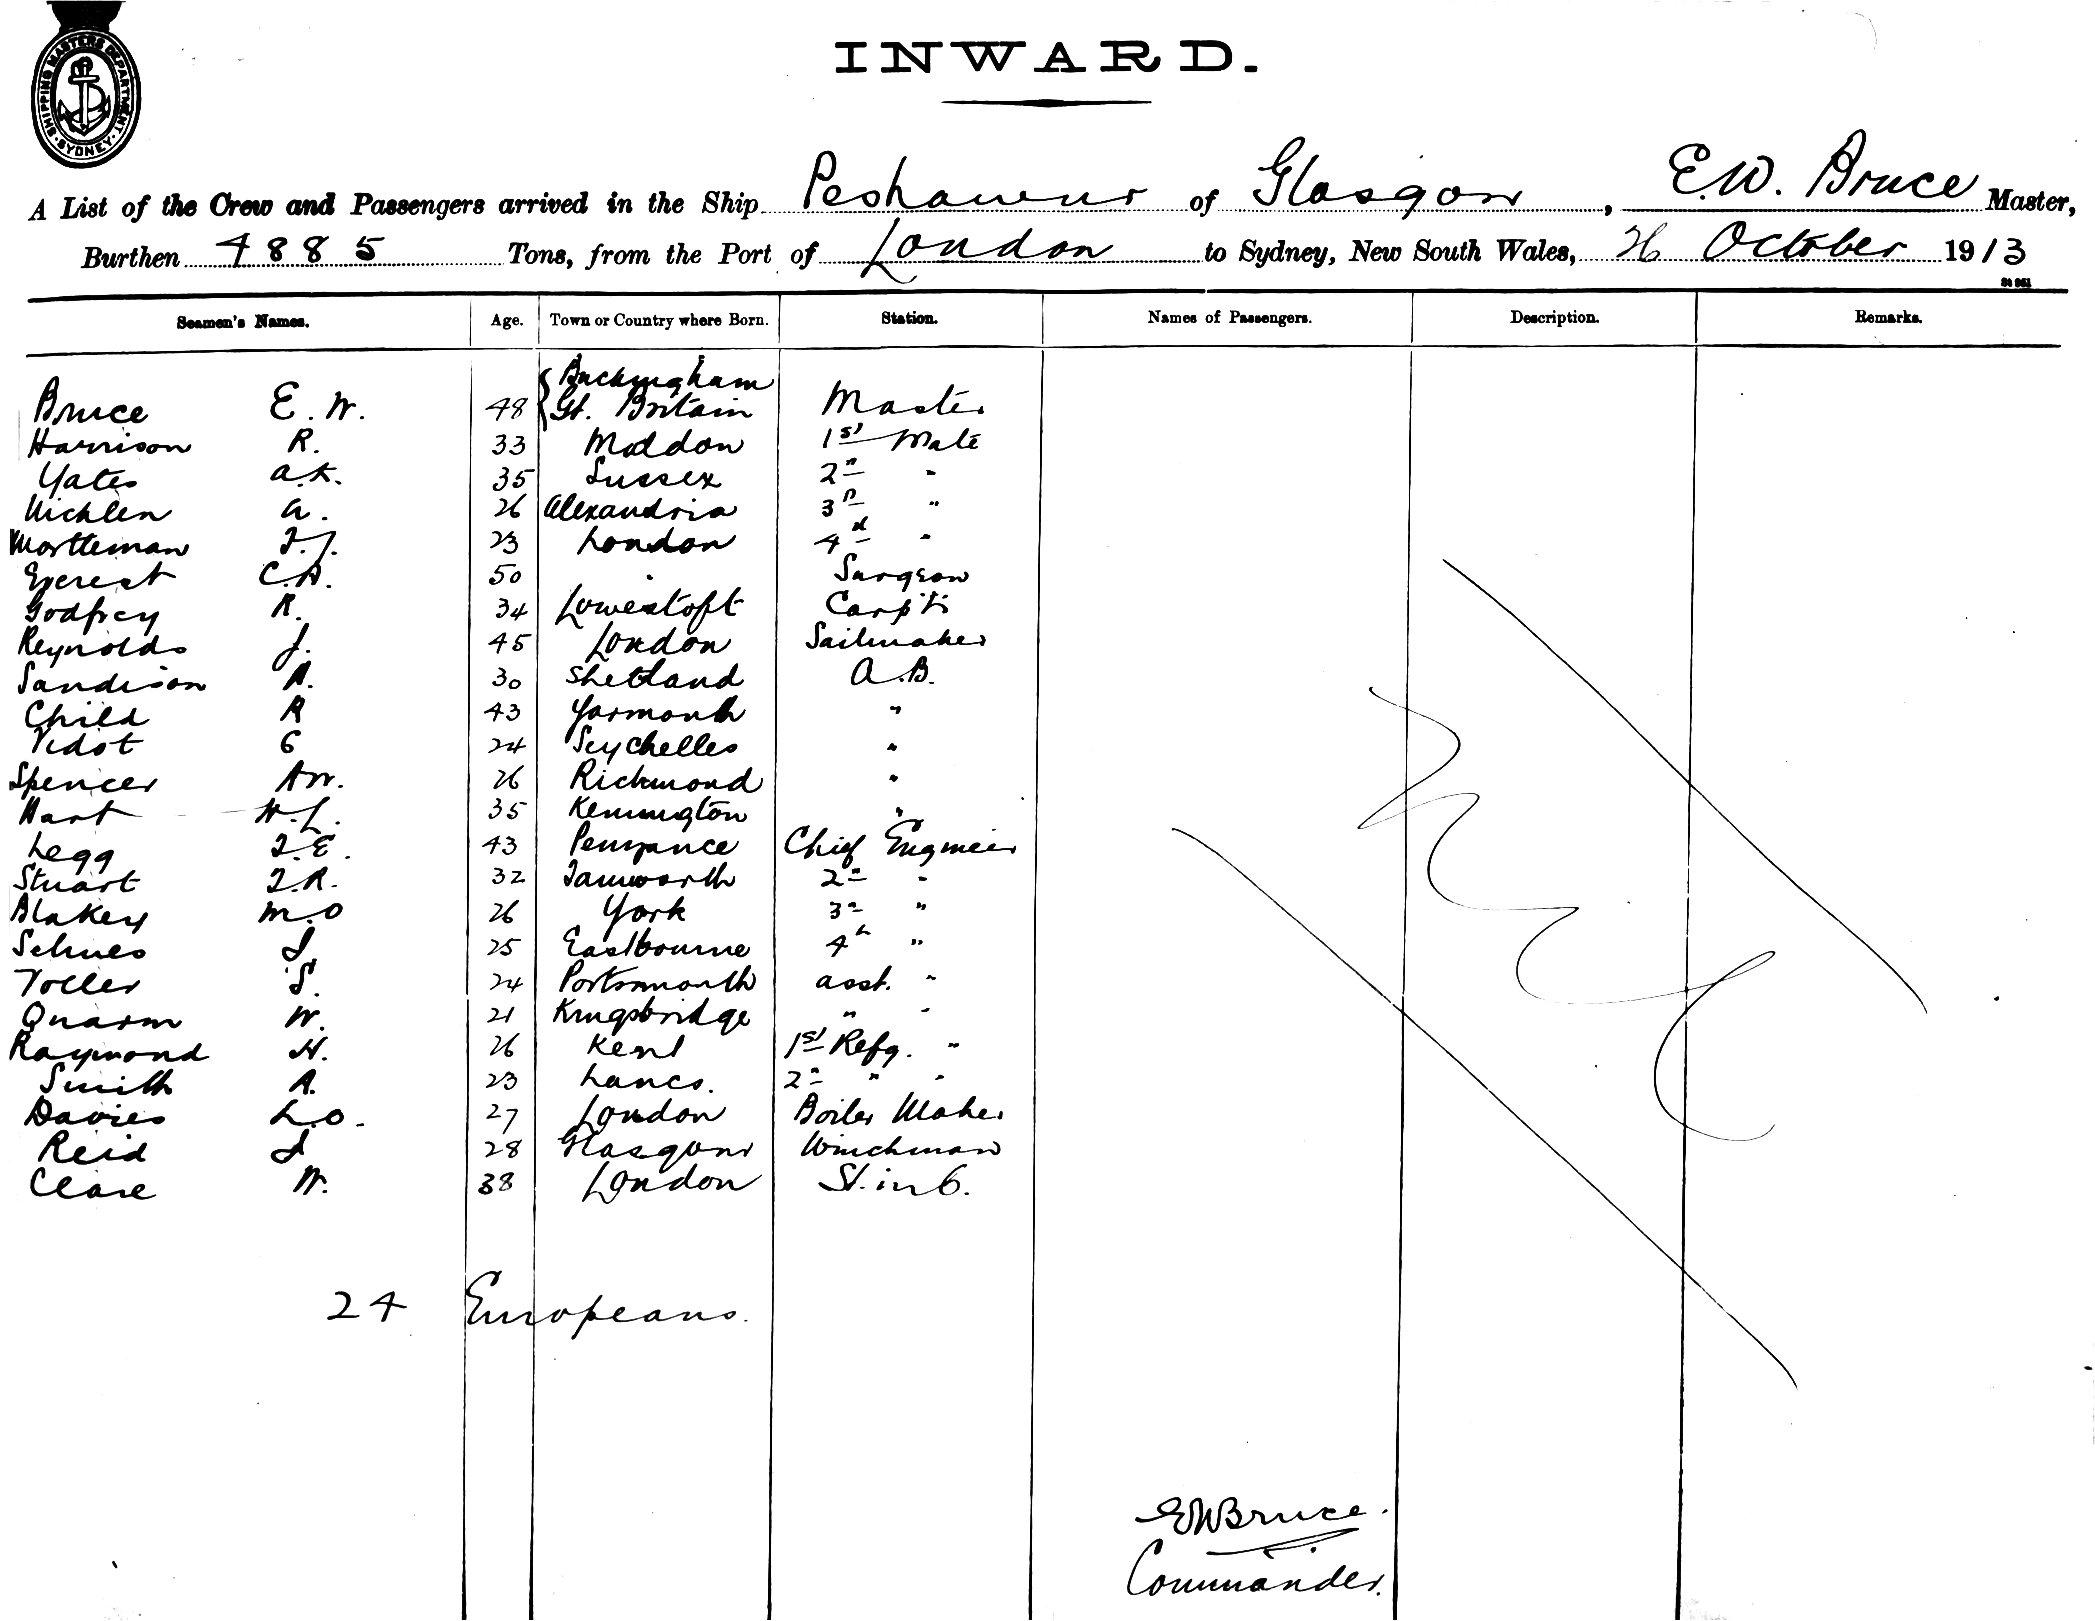 SHIPPING MASTERS DEPARTMENT · SYDNEY ·
INWARD.
A List of the Crew and Passengers arrived in the Ship Peshawur of Glasgow, E.W. Bruce Master,
Burthen 4885 Tons, from the Port of London to Sydney, New South Wales, 26 October 1913
Seamen's Names. Age. Town or Country where Born. Station. Names of Passengers. Description. Remarks.
Buckingham
Bruce E. W. 48 Gt. Britain Master
Harrison R. 33 Maldon 1st Mate
Yates A.K. 35 Sussex 2n "
Nicklen A. 26 Alexandria 3rd "
23 London 4th "
C.A. 50 " Surgeon
Godfrey R. 34 Lowestoft Carp'tr
Reynolds J. 45 London Sailmaker
Sandison A. 30 Shetland A.B.
Child R 43 Yarmouth "
Vidot G 24 Seychelles "
Spencer A.W. 26 Richmond "
Hart H.L. 35 Kennington "
Legg T.E. 43 Penzance Chief Engineer
Stuart T.R. 32 Tamworth 2n "
Blakey M.O 26 York 3n "
25 Eastbourne 4th "
Toller S. 24 Portsmouth asst. "
Quarm W. 21 Kingsbridge " "
Raymond H. 26 Kent 1st Refg. "
Smith A. 23 Lancs. 2n " "
Davies L.O. 27 London Boiler Maker
Reid J 28 Glasgow Winchman
Clare W. 38 London St. in C.
Nil
24 Europeans.
EWBruce.
Commander.